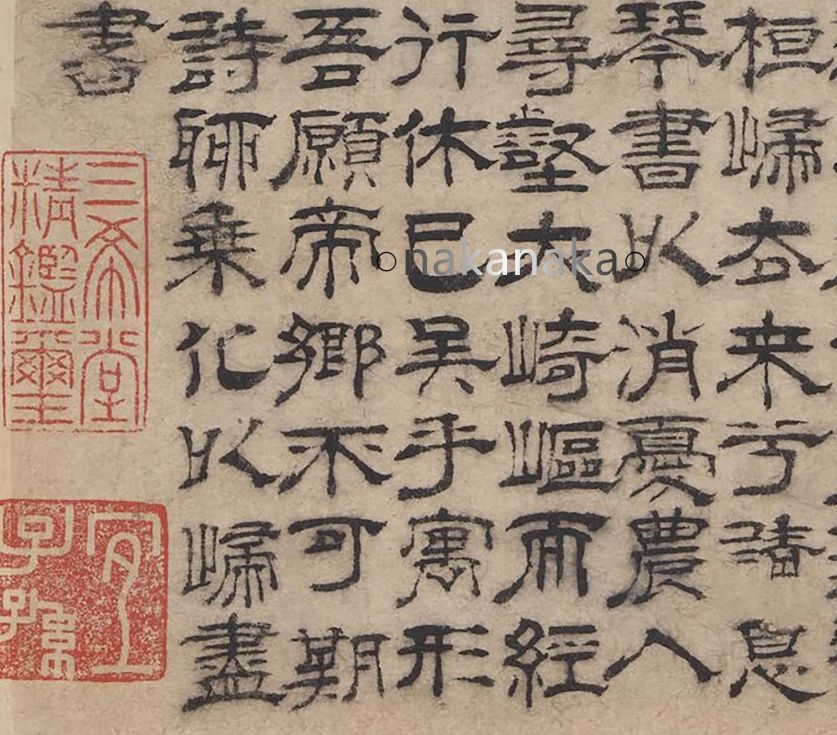 桓歸去来兮請息
琴書以消憂農人
尋壑亦崎嶇而經
行休已矣乎寓形
吾願帝鄉不可期
詩聊乗化以歸盡
書
三希堂
精鑑璽
宜
子孫
○nakanaka○